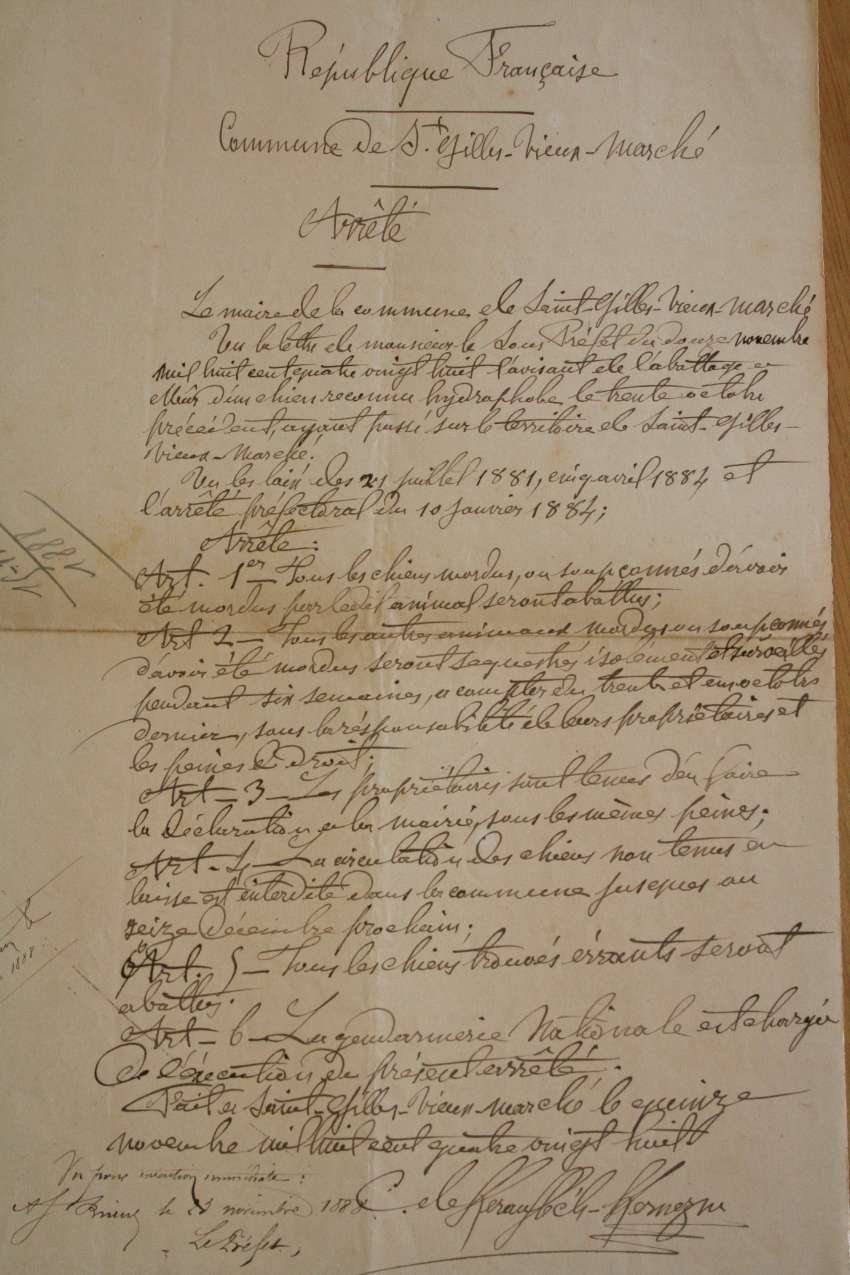 République Française
Commune de St Gilles-Vieux-Marché
Arrêté
Le maire de la commune de Saint-Gilles-Vieux-Marché
Vu la lettre de monsieur le Sous Préfet du douze novembre
mil huit cent quatre vingt huit l'avisant de l'abattage a
Mûr d'un chien reconnu hydrophobe, le trente octobre
précédent, ayant passé sur le territoire de Saint-Gilles-
Vieux-Marché.
Vu les lois des 21 juillet 1881, cinq avril 1884 et
l'arrêté préfectoral du 10 janvier 1884;
Arrête:
Art. 1er - Tous les chiens mordus, ou soupçonnés d'avoir
été mordus par ledit animal seront abattus;
Art 2 - Tous les autres animaux mordus ou soupçonnés
d'avoir été mordus seront séquestrés isolément et surveillés
pendant six semaines, a compter du trente et un octobre
dernier, sous la résponsabilité de leurs propriétaires et
les peines de droit;
Art - 3 - Les propriétaires sont tenus d'en faire
la déclaration a la mairie, sous les mêmes peines;
Art - 4 - La circulation des chiens non tenus en
laisse est interdite dans la commune jusques au
seize décembre prochain;
Art. 5 - Tous les chiens trouvés érrants seront
abattus.
Art - 6 - La gendarmerie Nationale est chargée
de l'éxecution du présent arrêté.
Fait a Saint-Gilles-Vieux-marché le quinze
novembre mil huit cent quatre vingt huit
C. de
Vu pour exécution immédiate:
St Brieuc le novembre 1888
Le Préfet,
1888